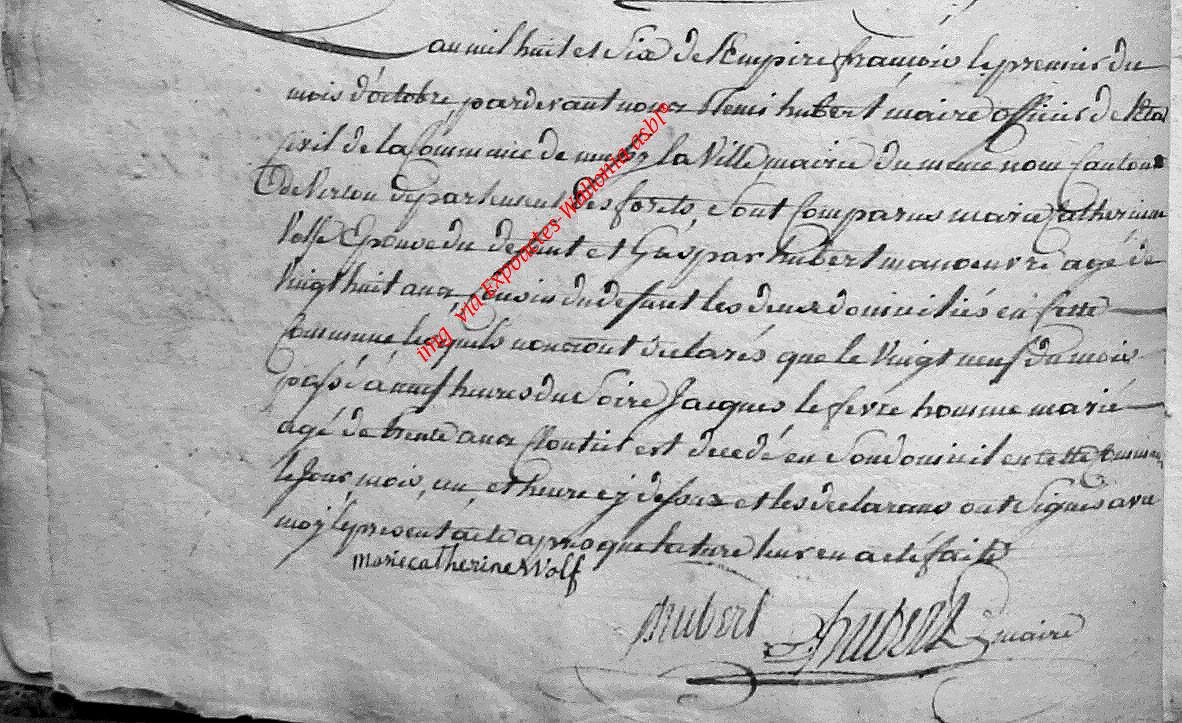 an mil huit et Six de l'Empire françois le premier du
mois d'octobre pardevant nous Remi hubert maire officier de l'Eta
Civil de la Commune de mussy la Ville mairie du meme nom Canton
de Virton departement des forets, Sont Comparus marie Catherinne
Volff Epouse du defunt et Gaspar hubert manoeuvre agé de
Vingt huit ans Cousin du defunt les deux domiciliés en Cette
Commune lesquels nous ont declarés que le Vingt neuf du mois
passé á neuf heures du Soire Jacques le fevre homme marié
agé de trente ans Cloutier est decedé en Son domicil en cette
le Jour mois, an, et heure cy dessus et les declarans ont Signés avec
moy le present acte apres que lature leur en a eté faite
marie catherine Wolf
hubert hubert maire
img via Expoactes-Wallonia asbl°